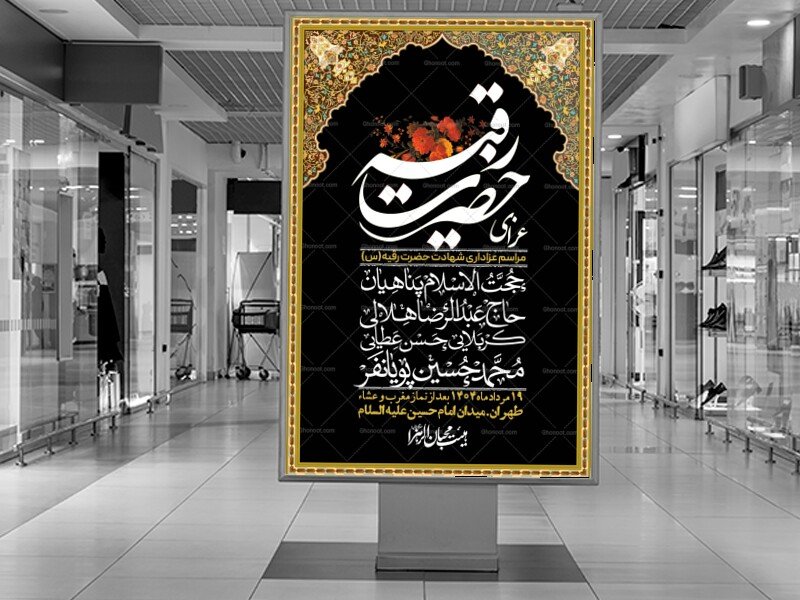 عزای
حضرت
رقیه
مراسم عزاداری شهادت حضرت رقیه (س)
حجت الاسلام پناهیان
حاج عبدالرضا هلالی
کربلایی حسن عطایی
محمدحسین پویانفر
۱۹ مرداد ماه ۱۴۰۴ بعد از نماز مغرب و عشاء
طهران. میدان امام حسین علیه السلام
هیئت محبان الزهرا
Ghonoot.com